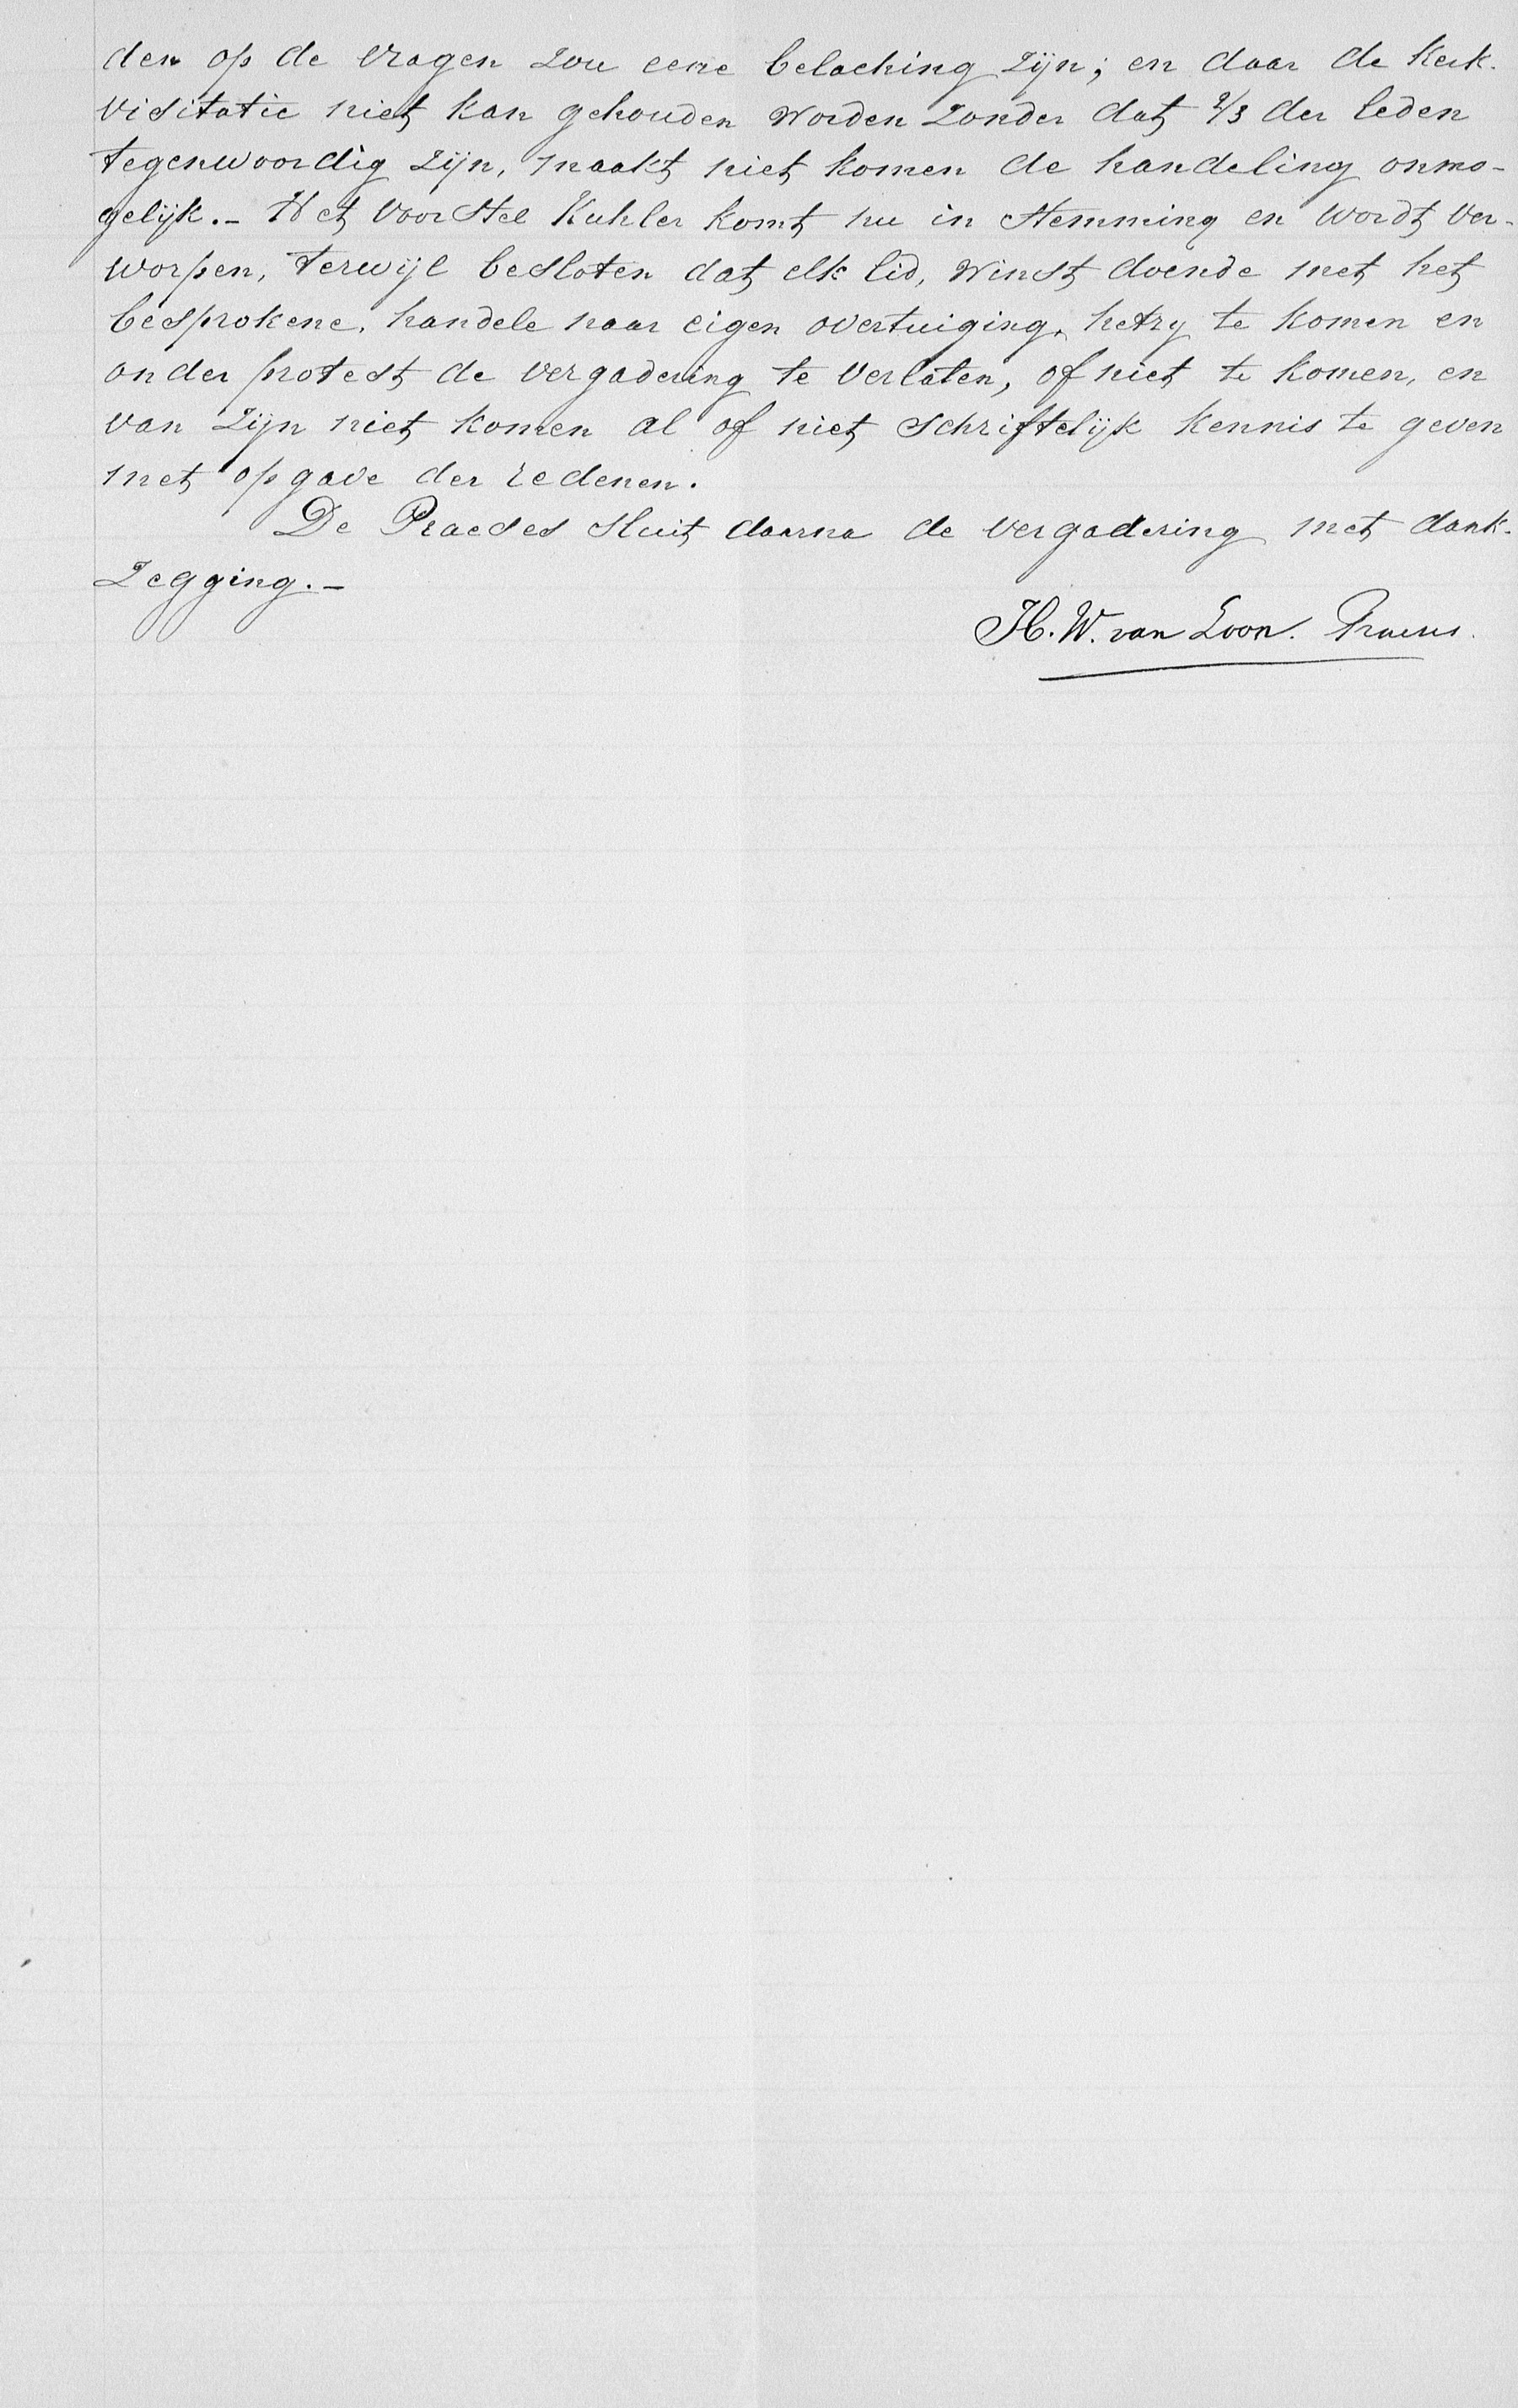 den op de vragen zou eene belaching zijn; en daar de Kerk-
visitatie niet kan gehouden worden zonder dat 2/3 der leden
tegenwoordig zijn, maakt niet komen de handeling onmo-
gelijk. - Het voorstel Kuhler komt nu in stemming en wordt ver-
worpen, terwijl besloten dat elk lid, winst doende met het
besprokene, handele naar eigen overtuiging, hetzy te komen en
onder protest de vergadering te verlaten, of niet te komen, en
van zijn niet komen al of niet schriftelijk kennis te geven
met opgave der redenen.
De Praeses sluit daarna de vergadering met dank-
zegging. -
H. W. van Loon. Praeses.